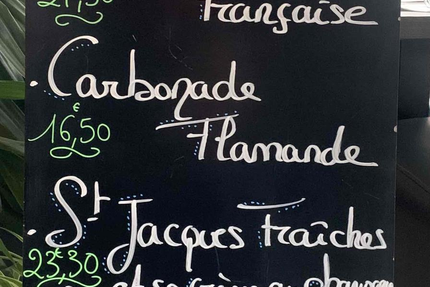 Française
. Carbonade
16,50€
Flamande
. St Jacques Fraîches
23€,30